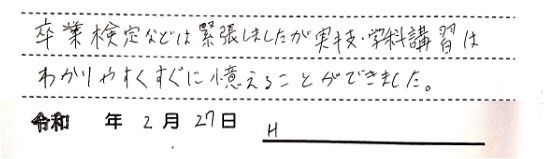 卒業検定などは緊張しましたが実技・学科講習は
わかりやすくすぐに憶えることができました。
令和 年 2月 27日 H